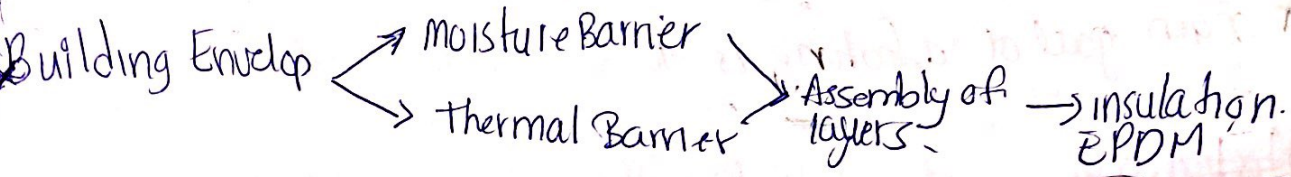 Building Envelop
Moisture Barrier
Thermal Barrier
Assembly of
layers
insulation.
EPDM